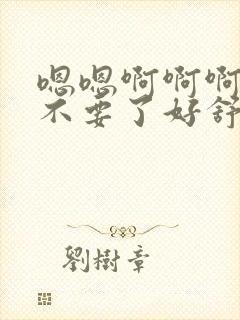 嗯嗯啊啊啊
不要了好舒
劉樹章